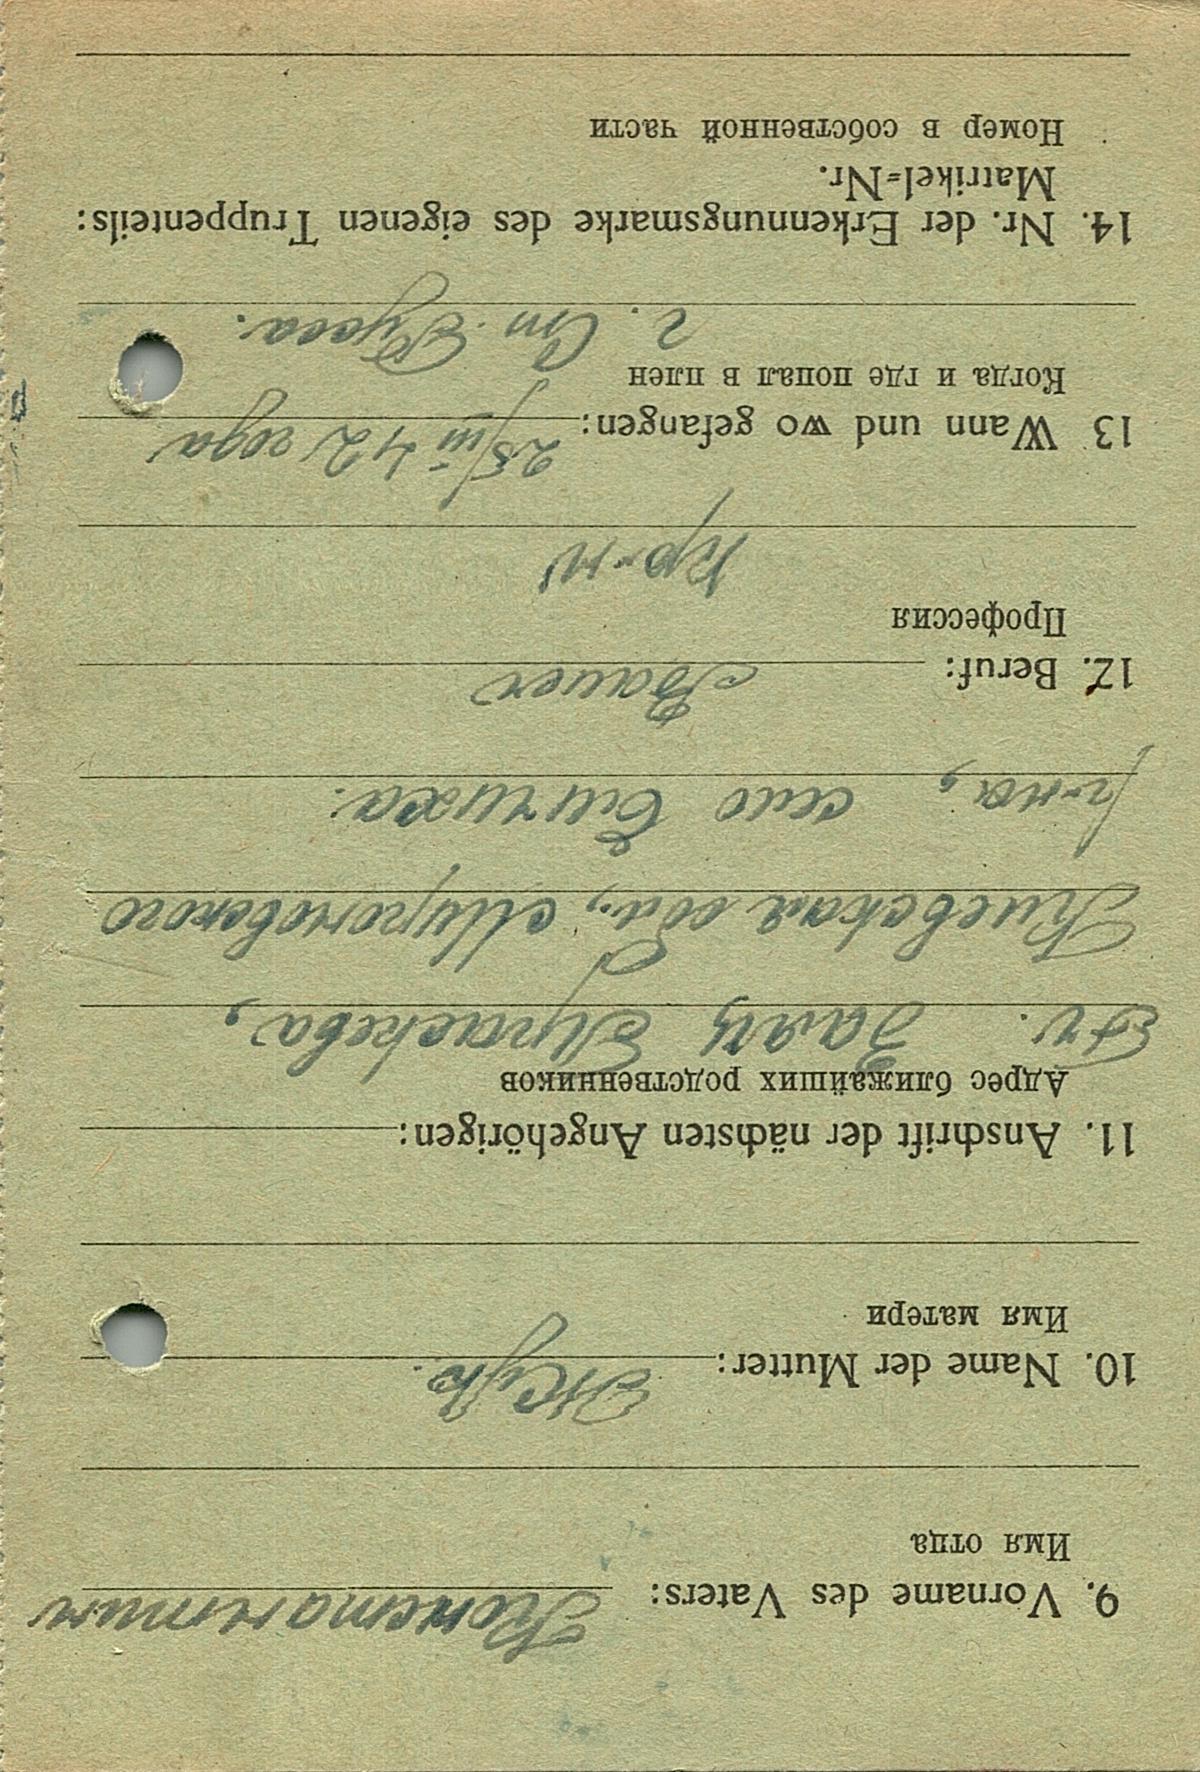 9. Vorname des Vaters: Константин
Имя отца
10. Name der Mutter: Жук.
Имя матери
11. Anschrift der nächsten Angehörigen:
Адрес ближайших родственников
Заяц
Киевская обл., Мироновского
р-на, село Бичиха.
12. Beruf: Bauer
Профессия
кр-н
13 Wann und wo gefangen: 25/III 42 года
Когда и где попал в плен
г. Ст. Русса.
14. Nr. der Erkennungsmarke des eigenen Truppenteils:
Matrikel=Nr.
Номер в собственной части